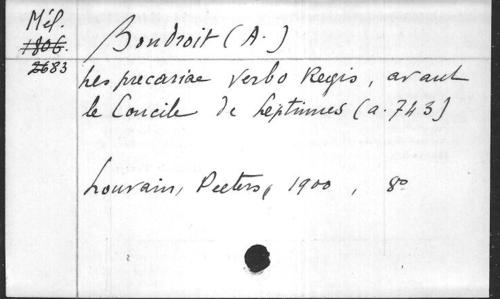 Mél.
1806.
2683
Bondroit (A.)
Les precariae verbo Regis, avant
le Concile de Leptinnes (a. 743)
Louvain, Peeters, 1900, 8º